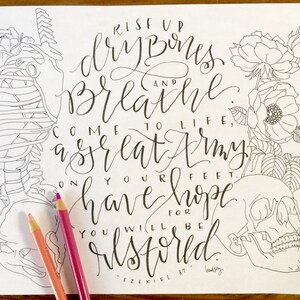 RISE UP
dry Bones
AND
Breathe.
COME TO LIFE,
a great Army
ON YOUR FEET
have hope
FOR
YOU WILL BE
restored.
- EZEKIEL 37 -